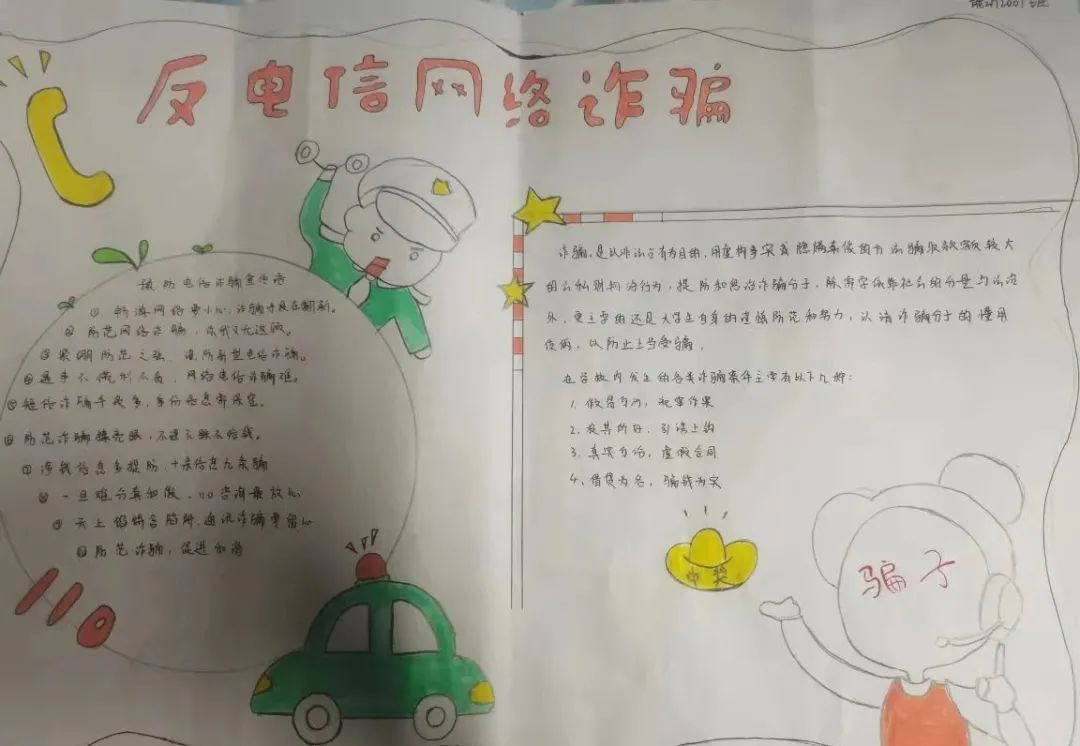 2001班
反电信网络诈骗
预防电信诈骗宣传语
① 畅游网络要小心,诈骗手段在翻新。
② 防范网络诈骗,你我义无返顾。
③ 紧绷防范之弦,谨防新型电信诈骗。
④ 遇事不慌利不贪,网络电信诈骗难。
⑤ 短信诈骗手段多,身份信息需保密。
⑥ 防范诈骗擦亮眼,不理不睬不给钱。
⑦ 涉钱信息多提防,十条信息九条骗
⑧ 一旦难分真和假,110咨询最放心
⑨ 天上馅饼含陷阱,通讯诈骗要留心
⑩ 防范诈骗,促进和谐
110
诈骗,是以非法占有为目的,用虚构事实或隐瞒真像的方法骗取款额较大
的公私财物的行为,提防和惩治诈骗分子,除需要依靠社会的力量与法治
外,更主要的还是大学生自身的谨慎防范和努力,认清诈骗分子的惯用
伎俩,以防止上当受骗。
在学校内发生的各类诈骗案件主要有以下几种:
1、假冒身份,流窜作案
2、投其所好,引诱上钩
3、真实身份,虚假合同
4、借贷为名,骗钱为实
中奖
骗子